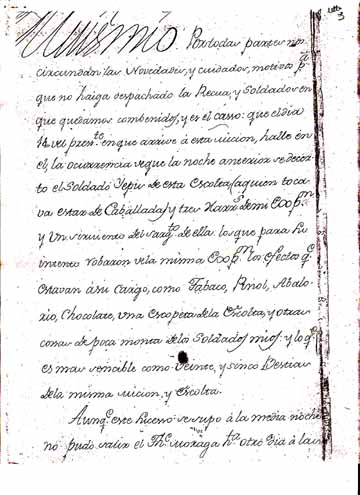 3
Muismio. Por todas partes me
circundan las Novedades, y cuidados, motivos pa.
que no haiga despachado la Recua, y Soldados en
que quedamos combenidos, y es el casso: que el dia
14 del preste. en que arrive á esta micion, halle en
el, la ocurrencia de que la noche anterior se decer
to el Soldado Yepis de esta Escolta, (a quien toca
va estar de Caballada) y tres de mi Expon.
y un sirviente del Sargto. de ella: los que para su
intento robaron de la misma Expon. los efectos qe.
estavan á su cargo, como Tabaco, Pinol, Abalo-
rio, Chocolate, una Escopeta de la Escolta, y otras
cosas de poca monta de los Soldados mios: y lo qe.
es mas sencible como Veinte, y sinco Bestias
de la misma micion, y Escolta.
Aunqe. este suceso se supo á la media noche
no pudo salir el Thte. Moraga hta. otro dia á las